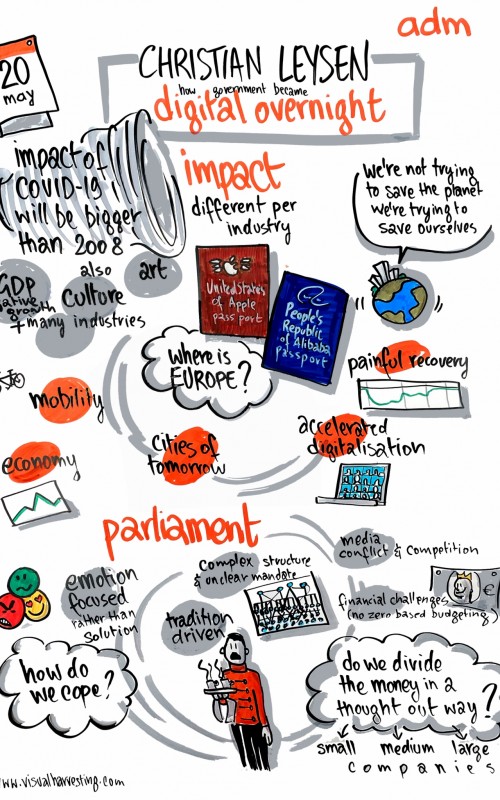 adm
20
may
CHRISTIAN LEYSEN
how government became
digital overnight
impact of
COVID-19
will be bigger
than 2008
also
art
culture
GDP
growth
+ many industries
impact
different per
industry
We're not trying
to save the planet
we're trying to
save ourselves
United States
of Apple
passport
People's
Republic
of Alibaba
passport
where is
EUROPE?
painful recovery
mobility
cities of
tomorrow
accelerated
digitalisation
economy
parliament
media
conflict & competition
complex structure
& unclear mandate
emotion
focused
rather than
solution
tradition
driven
financial challenges
(no zero based budgeting)
€
how do
we cope?
do we divide
the money in a
thought out way?
small medium large
companies
www.visualharvesting.com